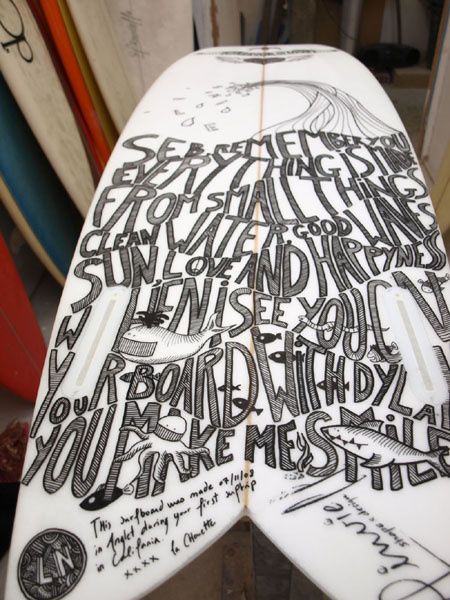 SEB REMEMBER YOU
EVERYTHING IS MADE
FROM SMALL THINGS
CLEAN WATER, GOOD WAVES
SUN, LOVE AND HAPPYNESS
WHEN I SEE YOU ON
YOUR BOARD WITH DYLAN
YOU MAKE ME SMILE
This surfboard was made
in Anglet during your first surftrip
in California.
xxxx la Chouette
LN
shape & design